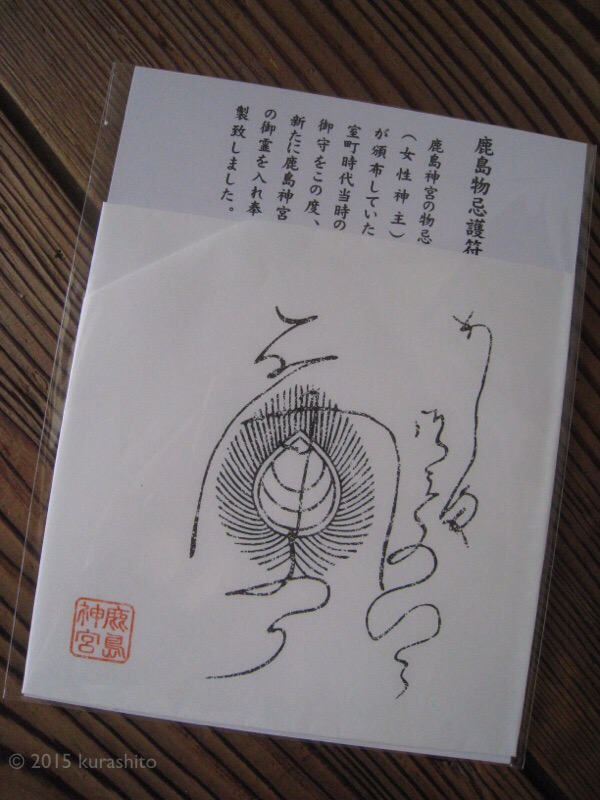 鹿島物忌護符
鹿島神宮の物忌
（女性神主）
が頒布していた
室町時代当時の
御守をこの度、
新たに鹿島神宮
の御霊を入れ奉
製致しました。
鹿島
神宮
© 2015 kurashito